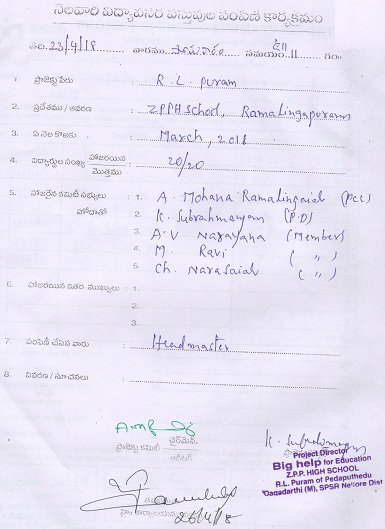 నెలవారి విద్యావసర వస్తువుల పంపిణీ కార్యక్రమం
తేది. 23/4/18 వారము సోమవారం సమయం 11 గం॥
1. ప్రాజెక్టు పేరు : R. L. Puram
2. ప్రదేశము / ఆవరణ : ZPPH School, Ramalingapuram
3. ఏ నెల కొఱకు : March, 2018
4. విద్యార్థుల సంఖ్య హాజరయిన / మొత్తము : 20/20
5. హాజరైన కమిటీ సభ్యులు : 1. A. Mohana Ramalingaiah (PCC)
హోదాతో 2. K. Subrahmanyam (P.D)
3. A.V. Narayana (Member)
4. M. Ravi ( " )
5. Ch. Narasaiah ( " )
6. హాజరయిన ఇతర ముఖ్యులు : 1.
2.
3.
7. పంపిణీ చేసిన వారు : Headmaster
8. వివరణ / సూచనలు :
ప్రాజెక్టు కమిటీ ఛైర్మెన్
ఆడిటర్
K. Subrahmanyam
Project Director
Big help for Education
Z.P.P. HIGH SCHOOL
R.L. Puram of Pedaputhedu
Dagadarthi (M), SPSR Nellore Dist
26/4/18